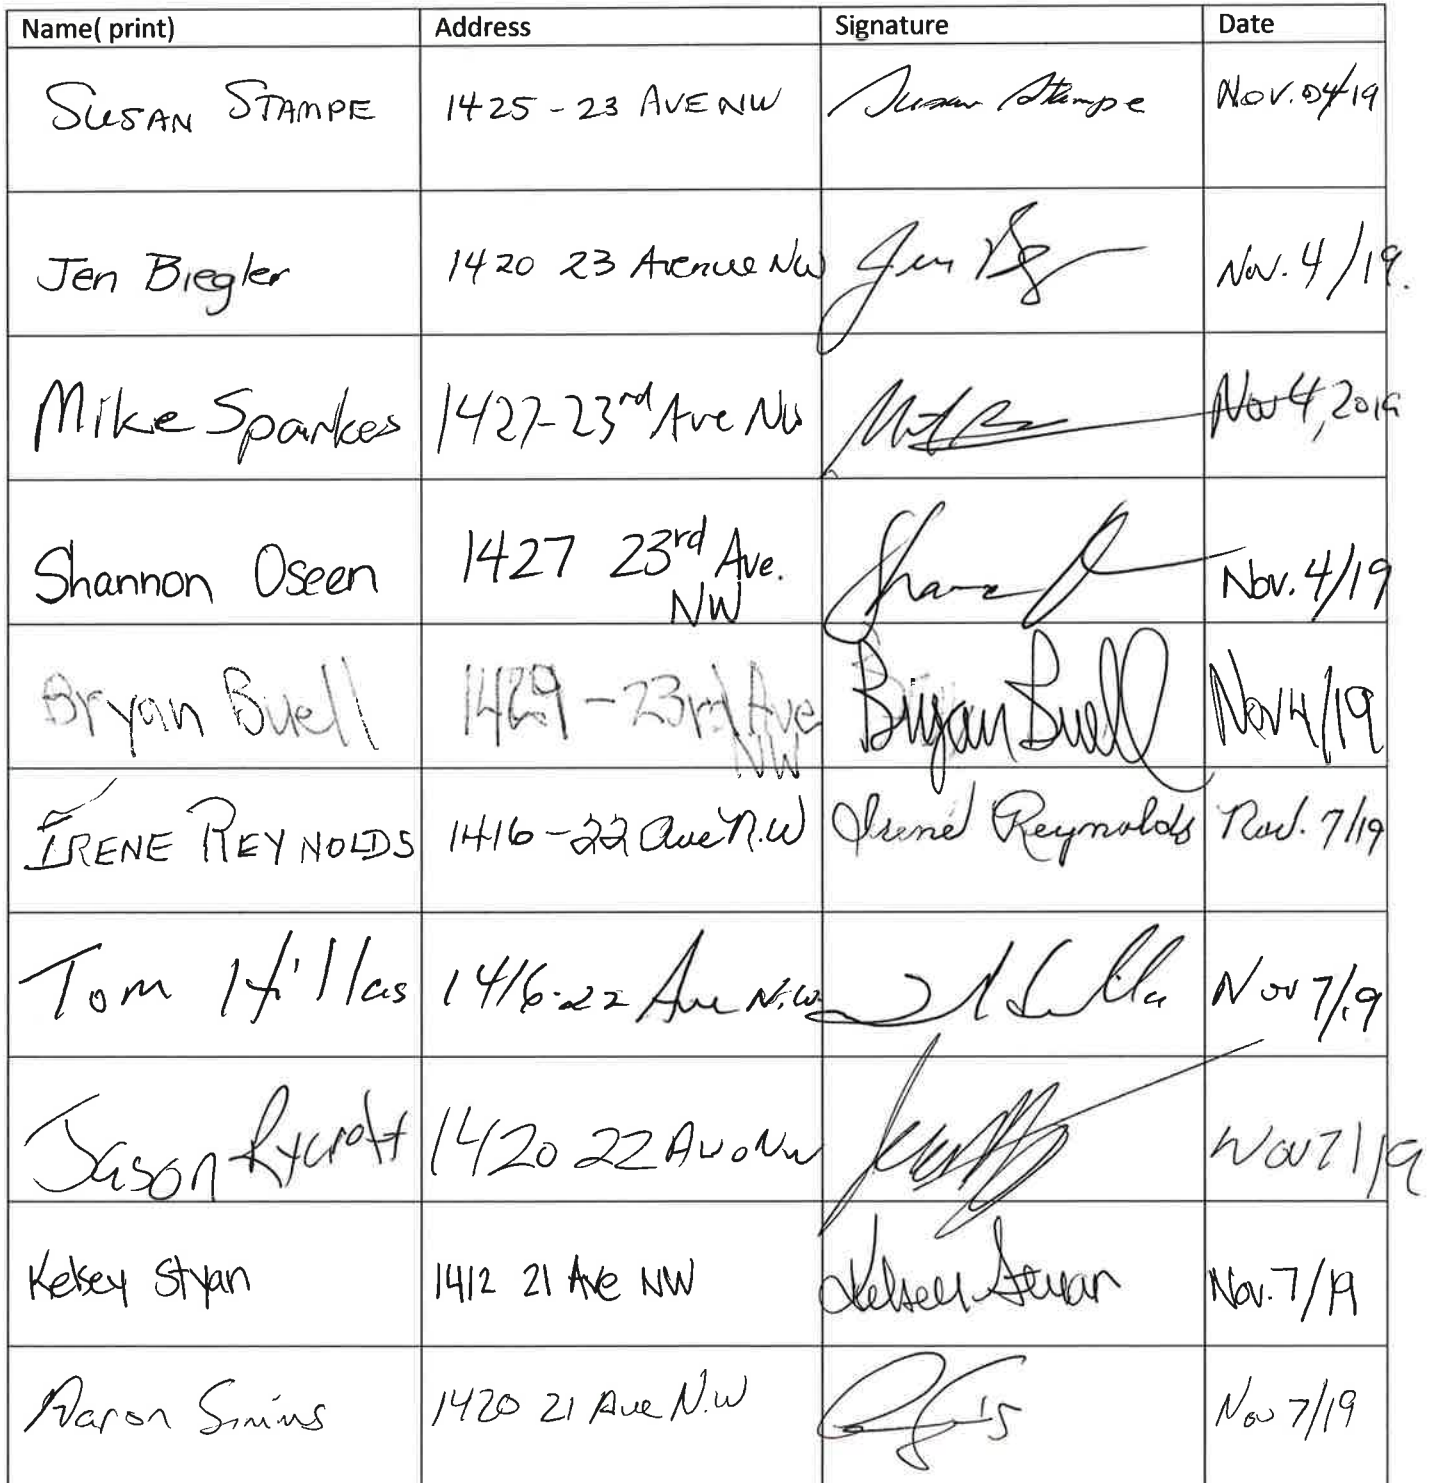 Name( print) Address Signature Date
SUSAN STAMPE 1425 - 23 AVE NW Susan Stampe Nov. 04/19
Jen Biegler 1420 23 Avenue NW Jen Nov. 4/19.
Mike Sparkes 1427-23rd Ave NW Nov 4, 2019
Shannon Oseen 1427 23rd Ave. Nov. 4/19
NW
Bryan Buell 1429 - 23rd Ave Bryan Buell Nov 4/19
NW
IRENE REYNOLDS 1416 - 22 Ave N.W Irene Reynolds Nov. 7/19
Tom Hillas 1416-22 Ave N.W. Nov 7/19
Jason Rycroft 1420 22 Ave NW Nov 7/19
Kelsey Styan 1412 21 Ave NW Kelsey Styan Nov. 7/19
Aaron 1420 21 Ave N.W Nov 7/19